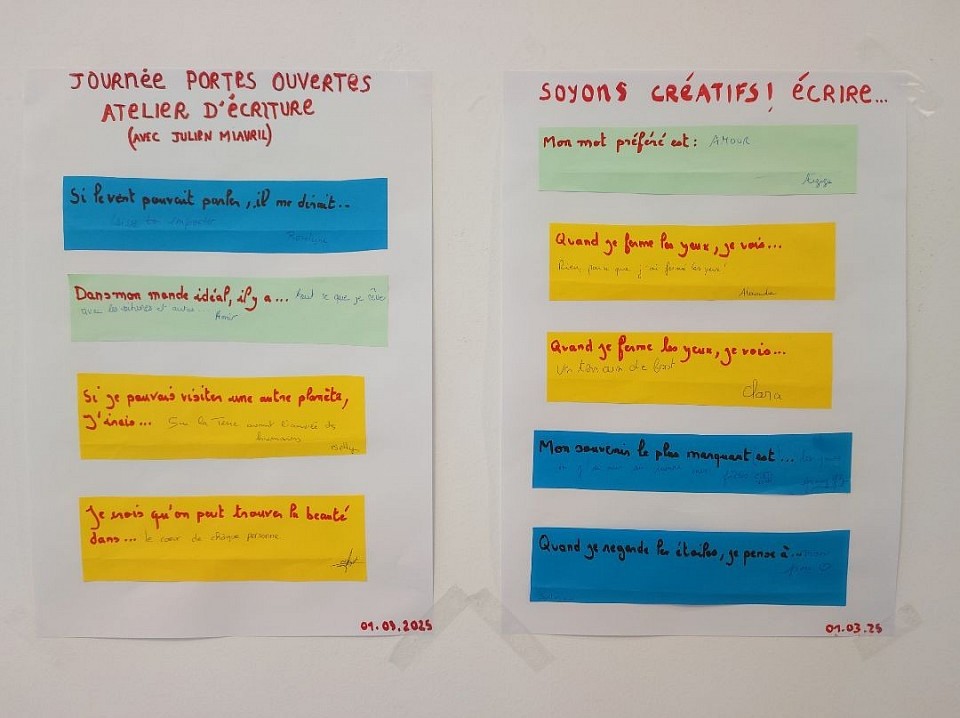 JOURNÉE PORTES OUVERTES
ATELIER D'ÉCRITURE
(AVEC JULIEN MIAVRIL)
Si le vent pouvait parler, il me dirait...
Dans mon monde idéal, il y a... tout ce que je rêve
Amir
Si je pouvais visiter une autre planète,
j'irais... Sur la Terre avant l'arrivée des
humains
Je crois qu'on peut trouver la beauté
dans... le cœur de chaque personne
01.03.2025
SOYONS CRÉATIFS! ÉCRIRE...
Mon mot préféré est: AMOUR
Quand je ferme les yeux, je vois...
Rien, parce que j'ai fermé les yeux!
Quand je ferme les yeux, je vois...
Un terrain de foot
Clara
Mon souvenir le plus marquant est...
Quand je regarde les étoiles, je pense à...
01.03.25